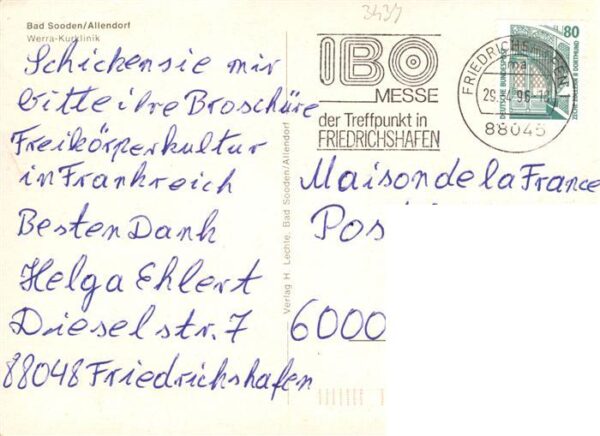 3431
Bad Sooden/Allendorf
Werra-Kurklinik
Schicken sie mir
bitte ihre Broschüre
Freikörperkultur
in Frankreich
Besten Dank
Helga Ehlert
Dieselstr. 7
88048 Friedrichshafen
Verlag H. Lechte, Bad Sooden/Allendorf
IBO
MESSE
der Treffpunkt in
FRIEDRICHSHAFEN
FRIEDRICHSHAFEN 1
88045
80
DEUTSCHE BUNDESPOST
ZECHE ZOLLERN II DORTMUND
Maison de la France
Pos
6000